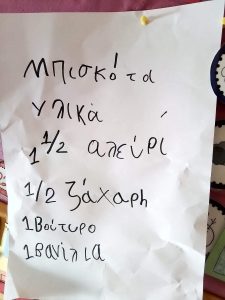 Μπισκότα
Υλικά
1 1/2 αλεύρι
1/2 ζάχαρη
1 Βούτυρο
1 Βανίλια